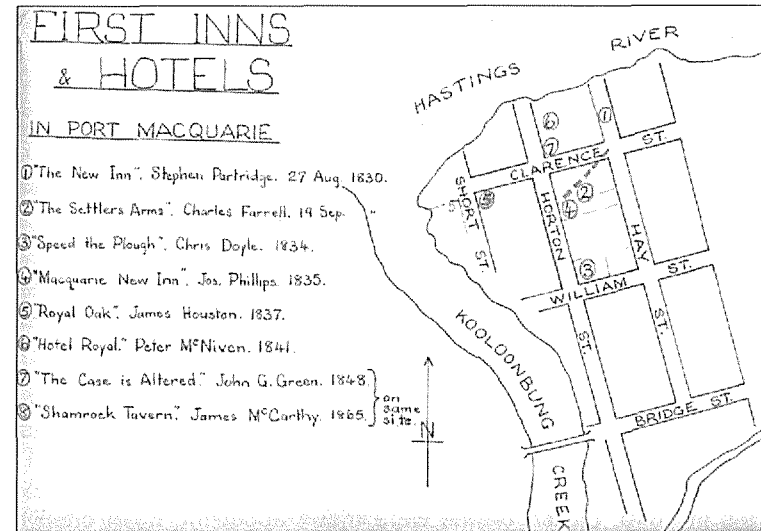 FIRST INNS
& HOTELS
IN PORT MACQUARIE
① "The New Inn". Stephen Partridge. 27 Aug. 1830.
② "The Settlers Arms". Charles Farrell. 19 Sep. "
③ "Speed the Plough". Chris Doyle. 1834.
④ "Macquarie New Inn". Jos. Phillips. 1835.
⑤ "Royal Oak". James Houston. 1837.
⑥ "Hotel Royal." Peter McNiven. 1841.
⑦ "The Case is Altered." John G. Green. 1848.
⑧ "Shamrock Tavern". James McCarthy. 1865.
on
same
site.
N
HASTINGS RIVER
⑥
①
⑦
CLARENCE ST.
SHORT ST.
⑤
②
④
HORTON ST.
HAY ST.
③
WILLIAM ST.
KOOLOONBUNG CREEK
BRIDGE ST.